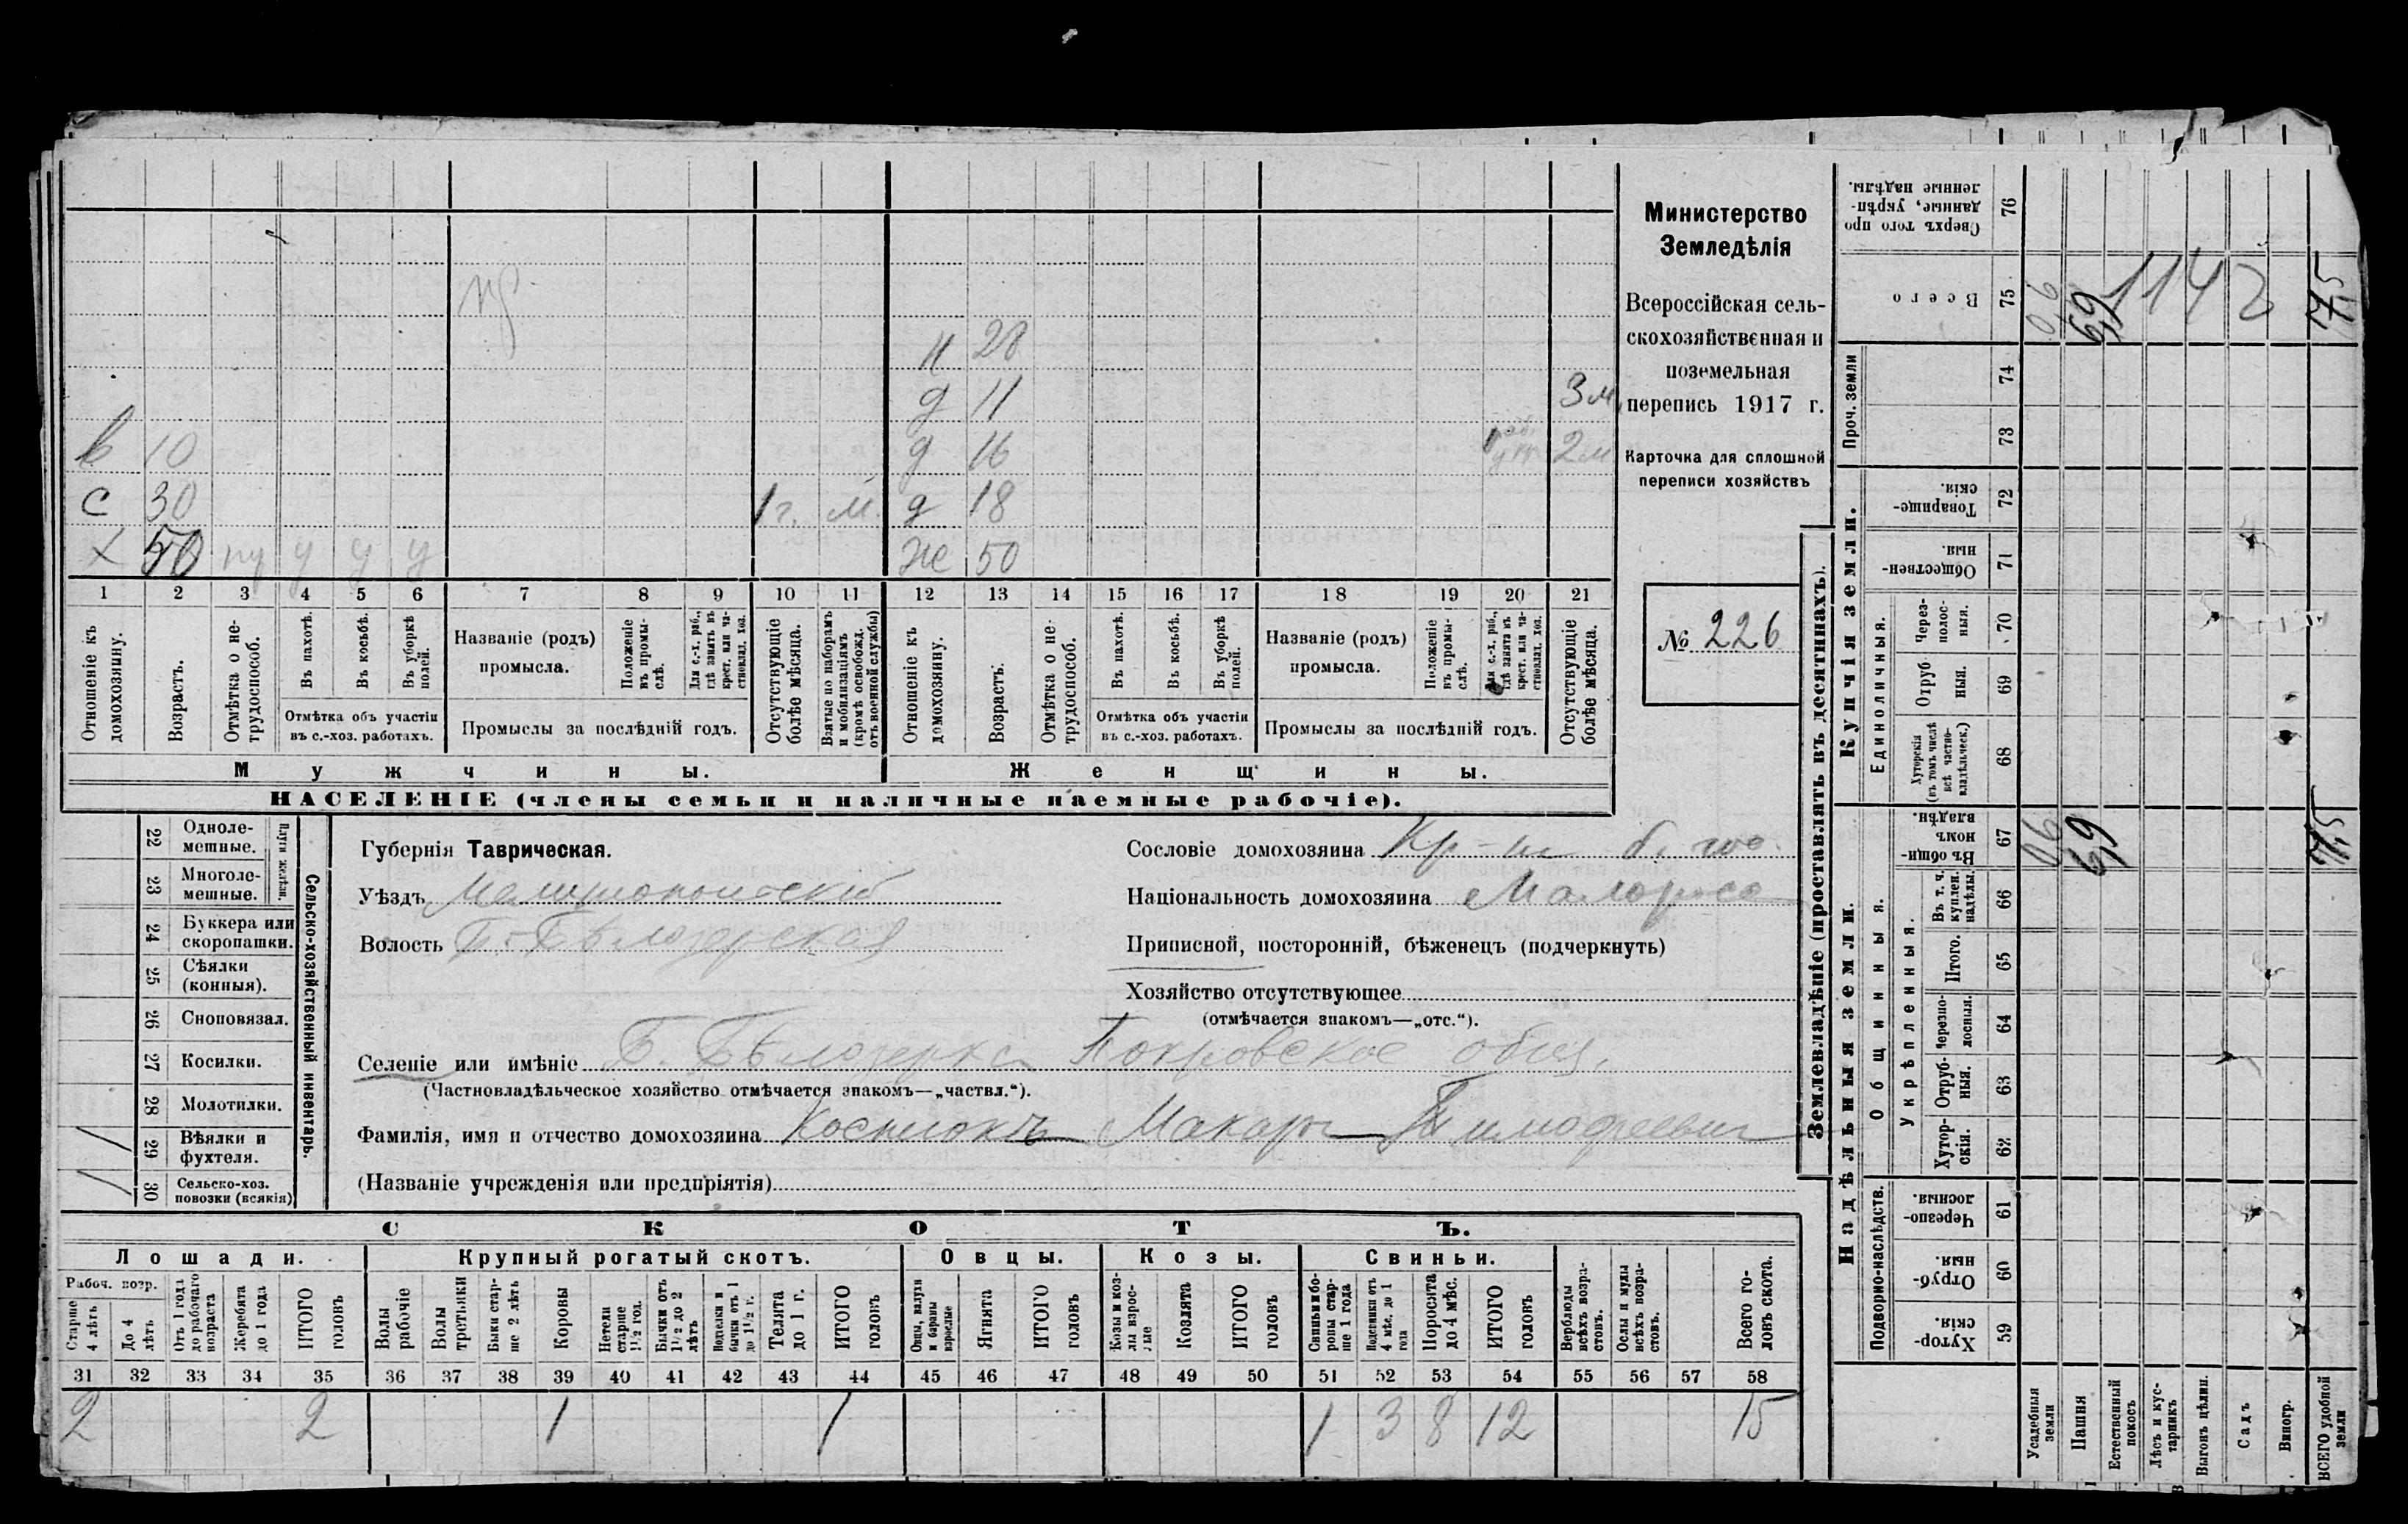 Министерство
Земледѣлія
Всероссійская сель-
скохозяйственная и
поземельная
перепись 1917 г.
Карточка для сплошной
переписи хозяйствъ
№ 226
н 28
д 11 3 м
в 10 д 16 2 м
с 30 1 г. м. д 18
х 50 у у у ж 50
1 2 3 4 5 6 7 8 9 10 11 12 13 14 15 16 17 18 19 20 21
Отношеніе къ домохозяину.
Возрастъ.
Отмѣтка о не-трудоспособ.
Въ пахотѣ.
Въ косьбѣ.
Въ уборкѣ полей.
Отмѣтка объ участіи
въ с.-хоз. работахъ.
Названіе (родъ)
промысла.
Положеніе въ промы-слѣ.
Для с.-х. раб., гдѣ занятъ въ крест. или ча-стновлад. хоз.
Промыслы за послѣдній годъ.
Отсутствующіе болѣе мѣсяца.
Взятые по наборамъ и мобилизаціямъ (кромѣ освобожд. отъ военной службы)
Отношеніе къ домохозяину.
Возрастъ.
Отмѣтка о не-трудоспособ.
Въ пахотѣ.
Въ косьбѣ.
Въ уборкѣ полей.
Отмѣтка объ участіи
въ с.-хоз. работахъ.
Названіе (родъ)
промысла.
Положеніе въ промы-слѣ.
Для с.-х. раб., гдѣ занята въ крест. или ча-стновлад. хоз.
Промыслы за послѣдній годъ.
Отсутствующіе болѣе мѣсяца.
Мужчины. Женщины.
НАСЕЛЕНІЕ (члены семьи и наличные наемные рабочіе).
22 Одноле-мешные.
23 Многоле-мешные.
Плуги желѣзн.
24 Буккера или скоропашки.
25 Сѣялки (конныя).
26 Сноповязал.
27 Косилки.
28 Молотилки.
29 Вѣялки и фухтеля. /
30 Сельско-хоз. повозки (всякія) /
Сельско-хозяйственный инвентарь.
Губернія Таврическая.
Уѣздъ Мелитопольскій
Волость Б.-Бѣлозерская
Сословіе домохозяина Кр-
Національность домохозяина Малороссъ
Приписной, посторонній, бѣженецъ (подчеркнуть)
Хозяйство отсутствующее
(отмѣчается знакомъ—„отс.“).
Селеніе или имѣніе Б. Бѣлозерка Покровское общ.
(Частновладѣльческое хозяйство отмѣчается знакомъ—„частвл.“).
Фамилія, имя и отчество домохозяина Макаръ Тимофеевич
(Названіе учрежденія или предпріятія)
СКОТЪ.
Лошади. Крупный рогатый скотъ. Овцы. Козы. Свиньи.
Рабоч. возр.
Старше 4 лѣтъ
До 4 лѣтъ
Отъ 1 года до рабочаго возраста
Жеребята до 1 года
ИТОГО головъ
Волы рабочіе
Волы третьяки
Быки стар-ше 2 лѣтъ
Коровы
Нетели старше 1½ год.
Бычки отъ 1½ до 2 лѣтъ
Подтелки и бычки отъ 1 до 1½ г.
Телята до 1 г.
ИТОГО головъ
Овцы, валухи и бараны взрослые
Ягнята
ИТОГО головъ
Козы и коз-лы взрос-лые
Козлята
ИТОГО головъ
Свиньи и бо-ровы стар-ше 1 года
Подсвинки отъ 4 мѣс. до 1 года
Поросята до 4 мѣс.
ИТОГО головъ
Верблюды всѣхъ возра-стовъ.
Ослы и мулы всѣхъ возра-стовъ.
Всего го-ловъ скота.
31 32 33 34 35 36 37 38 39 40 41 42 43 44 45 46 47 48 49 50 51 52 53 54 55 56 57 58
2 2 1 1 1 3 8 12 15
Землевладѣніе (проставлять въ десятинахъ).
Купчія земли.
Надѣльныя земли.
Сверхъ того про данные, укрѣп-ленные надѣлы. 76
Всего 75 0,6 6,9 7,5
Проч. земли 74 73
Товарище-скія. 72
Обществен-ныя. 71
Единоличныя.
Через-полос-ныя. 70
Отруб ныя. 69
Хуторскія (въ томъ числѣ всѣ частно-владѣльческ.) 68
Въ общи-номъ владѣн. 67 06 6,9 7,5
Общинныя.
Укрѣпленныя.
Въ т. ч. куплен. надѣлы. 66
Итого. 65
Черезпо-лосныя. 64
Отруб-ныя. 63
Хутор-скія. 62
Подворно-наслѣдств.
Черезпо-лосныя. 61
Отруб-ныя. 60
Хутор-скія. 59
Усадебныя земли
Пашня
Естественный покосъ
Лѣсъ и кус-тарникъ
Выгонъ цѣлин.
Садъ
Виногр.
ВСЕГО удобной земли